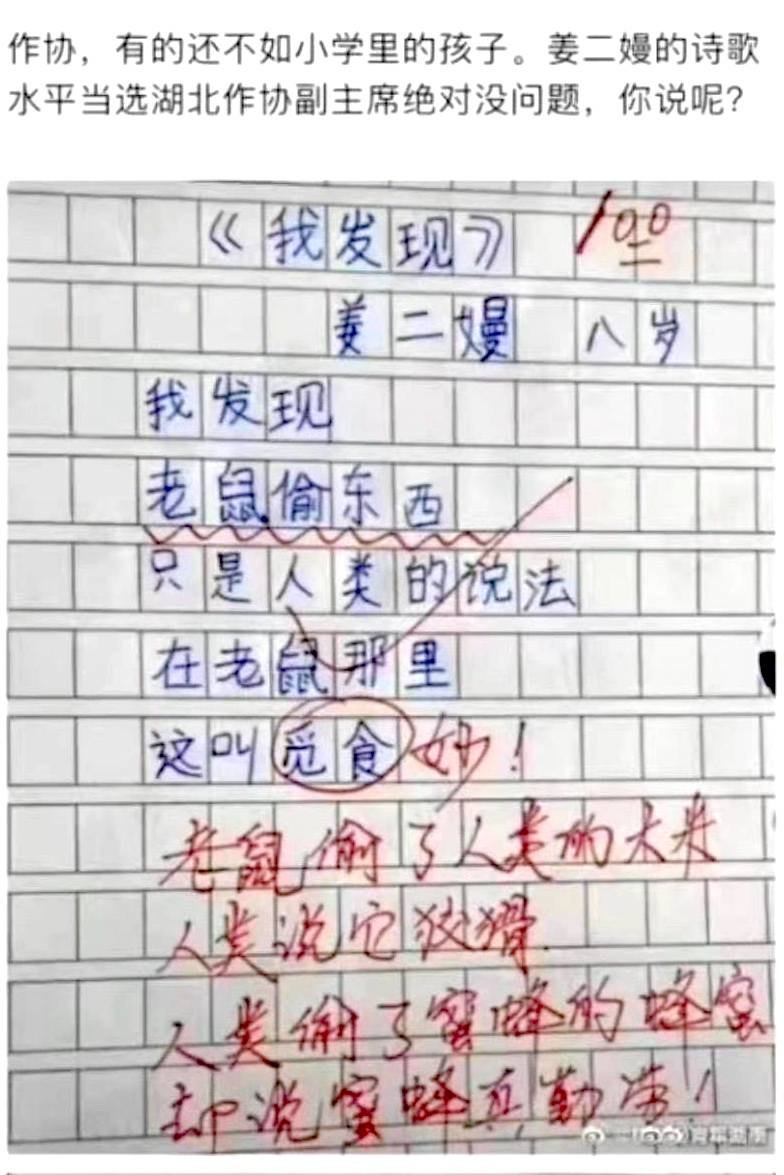 作协，有的还不如小学里的孩子。姜二嫚的诗歌
水平当选湖北作协副主席绝对没问题，你说呢？
《我发现》 100
姜二嫚 八岁
我发现
老鼠偷东西
只是人类的说法
在老鼠那里
这叫觅食 妙！
老鼠偷了人类的大米
人类说它狡猾
人类偷了蜜蜂的蜂蜜
却说蜜蜂真勤劳！